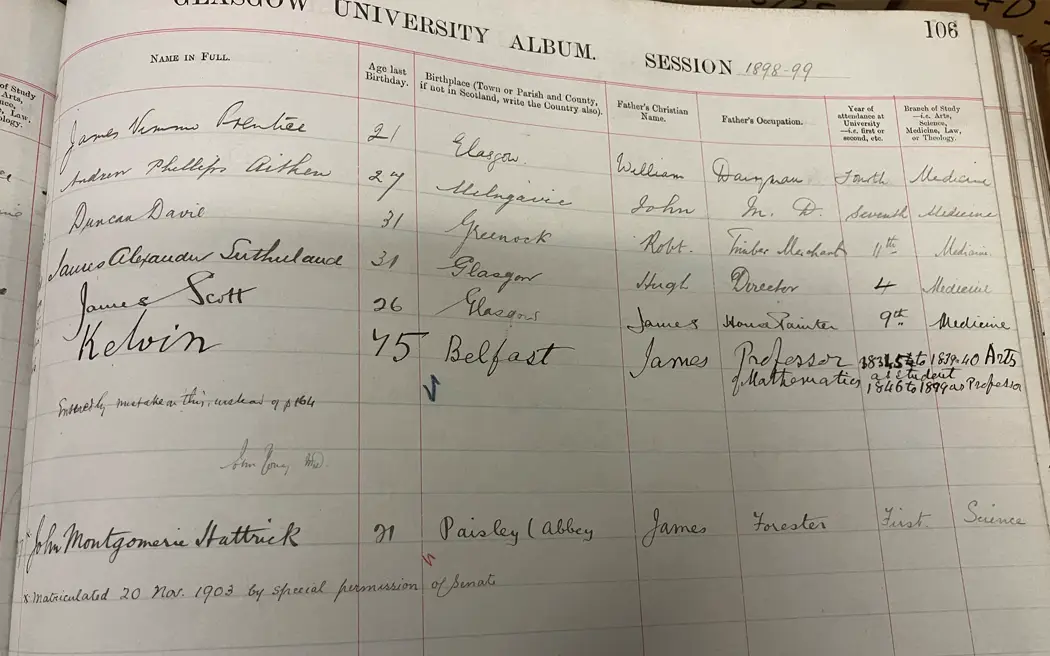 GLASGOW UNIVERSITY ALBUM. SESSION 1898-99 106
of Study
Arts,
nce,
e, Law.
ology.
NAME IN FULL. Age last Birthday. Birthplace (Town or Parish and County, if not in Scotland, write the Country also). Father's Christian Name. Father's Occupation. Year of attendance at University —i.e. first or second, etc. Branch of Study —i.e. Arts, Science, Medicine, Law, or Theology.
James Prentice 21 Glasgow. William Dairyman Fourth Medicine
Andrew Phillips Aitken 27 Milngavie John M. D. Seventh Medicine
Duncan Davie 31 Greenock Robt. Timber Merchant 11th Medicine
James Alexander Sutherland 31 Glasgow Hugh Director 4 Medicine
James Scott 26 Glasgow James House Painter 9th Medicine
Kelvin 75 Belfast James Professor to 1839-40 Arts
of Mathematics as student
1846 to 1899 as Professor
Entered by mistake on this, instead of p 164
John Young MD.
John Montgomerie Hattrick 21 Paisley (Abbey James Forester First. Science
x Matriculated 20 Nov. 1903 by special permission of Senate